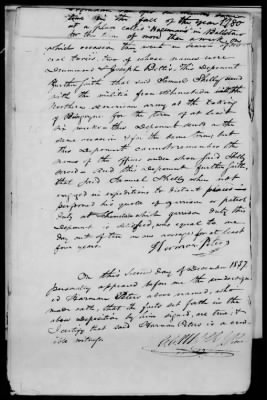 time in the fall of the year 1780
at a place called "Hallsman's" in Ballston
for the term of more than a week on
which occasion they went in search of seve
ral tories, two of whose names were
and Joseph Bettis, this deponent
further saith that said Samuel Skelly served
with the militia from Schenectada with the
Northern American army at the taking
of Burgoyne for the term of at least
six weeks this deponent served on the
same occasion & for the same term, but
this deponent cannot remember the
names of the officers under whom said Skelly
served And this deponent further saith,
that said Samuel Skelly when not
engaged in expeditions to distant places
performed his quota of garrison or patrol
duty at Schenectada which garrison duty this
deponent is satisfied, was equal to one
day out of ten on an average for at least
four years.
Harman Peters
On this day of December 1837
personally appeared before me the undersign
ed Harman Peters above named, who
made oath, that the facts set forth in the
above deposition by him signed, are true; &
I certify that said Harman Peters is a cred
ible witness.